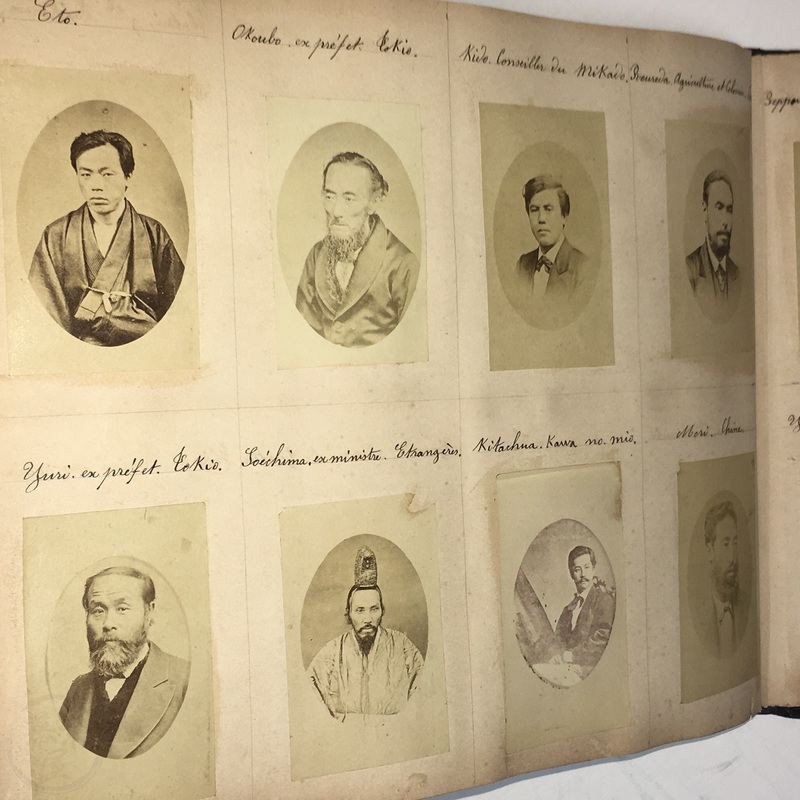 Eto.
Okoubo. ex préfet. Tokio.
Kido. Conseiller du Mikado.
Kouroda. Agriculture et Colonies
Yuri. ex préfet. Tokio.
Soéchima. ex ministre. Etrangères.
Kitachua. Kawa no. mio.
Mori. Chine.